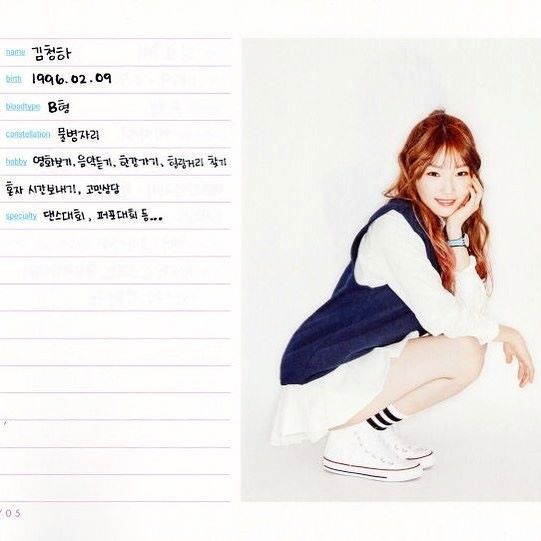 name 김청하
birth 1996.02.09
bloodtype B형
constellation 물병자리
hobby 영화보기, 음악듣기, 한강가기, 형광거리 찾기
혼자 시간보내기, 고민상담
specialty 댄스대회, 퍼포대회 등...
/05